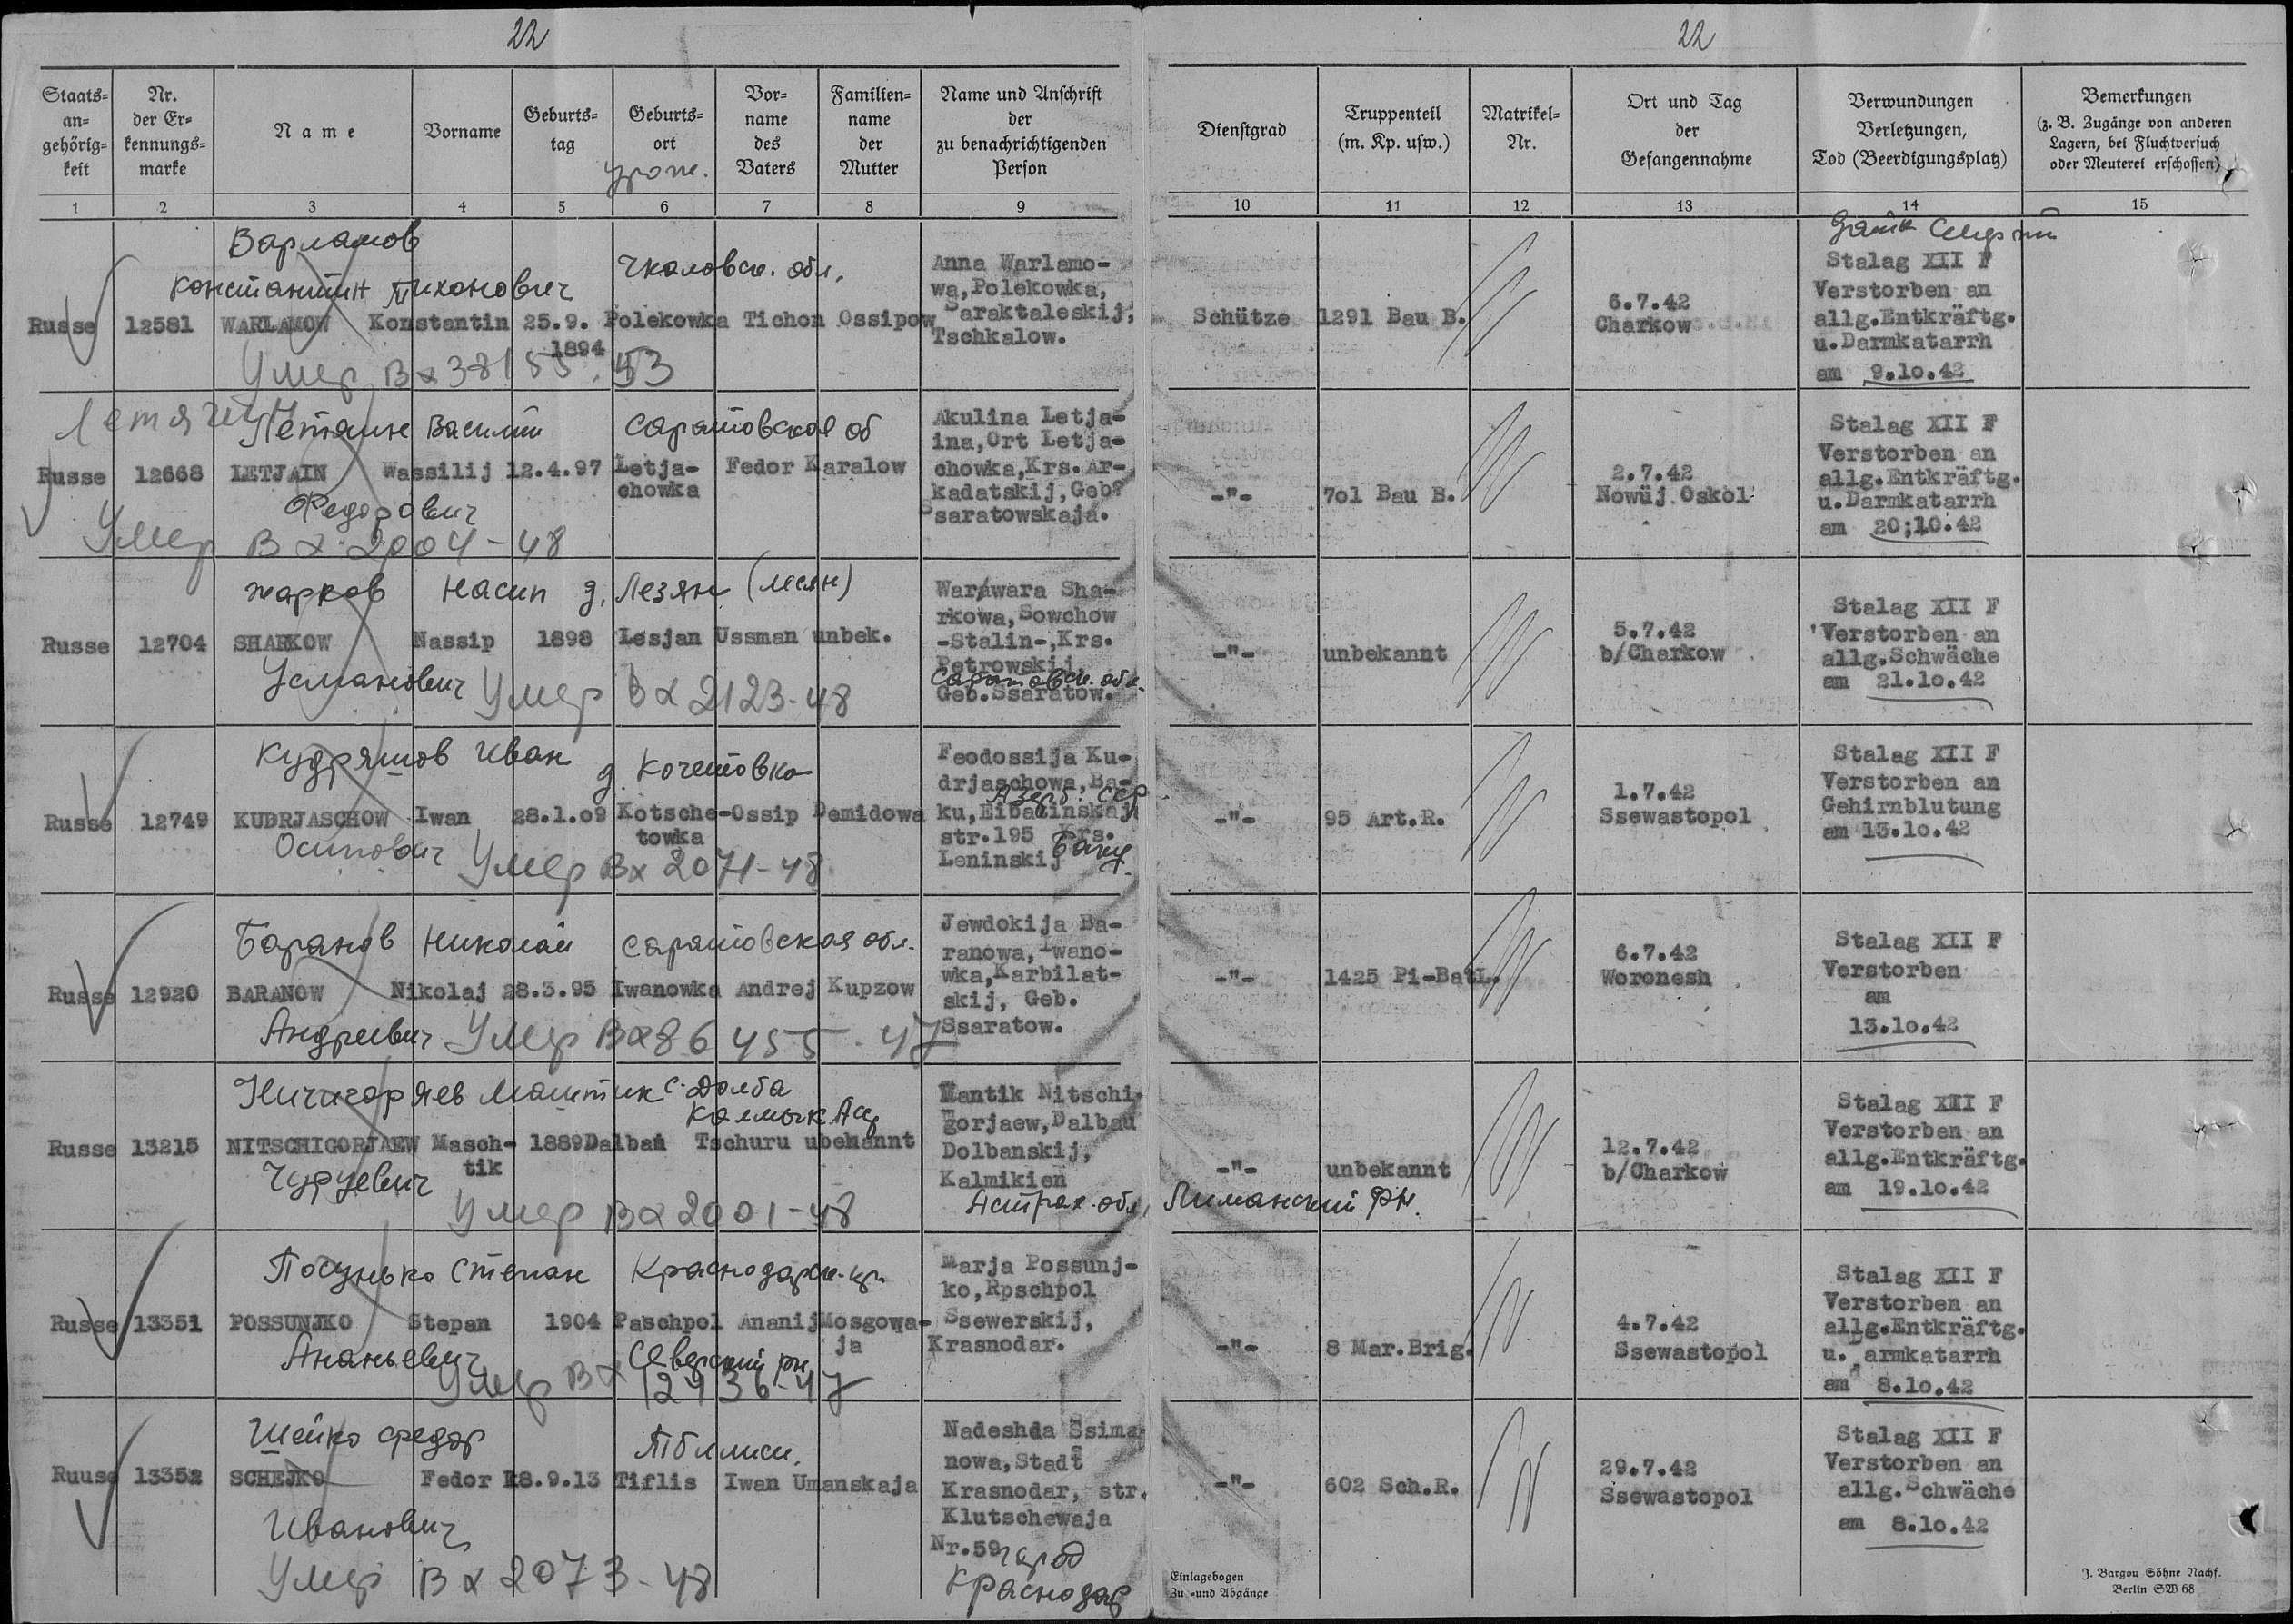 22
22
Staats-
an-
gehörig-
keit
Nr.
der Er-
kennungs-
marke
Name
Vorname
Geburts-
tag
Geburts-
ort
урож.
Vor-
name
des
Vaters
Familien-
name
der
Mutter
Name und Anschrift
der
zu benachrichtigenden
Person
Dienstgrad
Truppenteil
(m. Kp. usw.)
Matrikel-
Nr.
Ort und Tag
der
Gefangennahme
Verwundungen
Verletzungen,
Tod (Beerdigungsplatz)
Bemerkungen
(z. B. Zugänge von anderen
Lagern, bei Fluchtversuch
oder Meuterei erschossen)
1 2 3 4 5 6 7 8 9 10 11 12 13 14 15
Варламов
Константин Тихонович
Чкаловск. обл.
Russe 12581 WARLAMOW Konstantin 25.9. Polekowka Tichon Ossipow
1894
Умер Вх 38155. 53
Anna Warlamo-
wa, Polekowka,
Saraktaleskij,
Tschkalow.
Schütze 1291 Bau B.
6.7.42
Charkow
Stalag XII F
Verstorben an
allg.Entkräftg.
u.Darmkatarrh
am 9.10.42
Летягин
Летяин Василий Саратовская об
Russe 12668 LETJAIN Wassilij 12.4.97 Letja- Fedor Karalow
chowka
Федорович
Умер Вх 2004-48
Akulina Letja-
ina, Ort Letja-
chowka, Krs. Ar-
kadatskij, Geb?
Ssaratowskaja.
-"- 701 Bau B.
2.7.42
Nowüj Oskol
Stalag XII F
Verstorben an
allg.Entkräftg.
u.Darmkatarrh
am 20;10.42
Жарков Насип д. Лезян (Лесян)
Russe 12704 SHARKOW Nassip 1898 Lesjan Ussman unbek.
Усманович Умер Вх 2123-48
Warawara Sha-
rkowa, Sowchow
-Stalin-, Krs.
Petrowskij,
Саратовск. обл.
Geb.Ssaratow.
-"- unbekannt
5.7.42
b/Charkow
Stalag XII F
Verstorben an
allg.Schwäche
am 21.10.42
Кудряшов Иван д. Кочетовка
Russe 12749 KUDRJASCHOW Iwan 28.1.09 Kotsche- Ossip Demidowa
towka
Осипович Умер Вх 2071-48
Feodossija Ku-
drjaschowa, Ba-
Азерб. ССР
ku, Eibatinskaj
str.195 Krs.
Leninskij Баку
-"- 95 Art.R.
1.7.42
Ssewastopol
Stalag XII F
Verstorben an
Gehirnblutung
am 13.10.42
Баранов Николай Саратовская обл.
Russe 12920 BARANOW Nikolaj 28.3.95 Iwanowka Andrej Kupzow
Андреевич Умер Вх 86455-47
Jewdokija Ba-
ranowa, Iwano-
wka, Karbilat-
skij, Geb.
Ssaratow.
-"- 1425 Pi-Batl.
6.7.42
Woronesh
Stalag XII F
Verstorben
am
13.10.42
Ничигоряев Маштик с. Долба
Калмык. АССР
Russe 13215 NITSCHIGORJAEW Masch- 1889 Dalban Tschuru ubekannt
tik
Чуруевич
Умер Вх 2001-48
Mantik Nitschi
gorjaew, Dalbau
Dolbanskij,
Kalmikien
Астрах. обл, Лиманский р-н.
-"- unbekannt
12.7.42
b/Charkow
Stalag XII F
Verstorben an
allg.Entkräftg.
am 19.10.42
Посунько Степан Краснодарск. кр.
Russe 13351 POSSUNJKO Stepan 1904 Paschpol Ananij Mosgowa-
ja
Ананьевич Северский рн
Умер Вх 12936-47
Marja Possunj-
ko, Rpschpol
Ssewerskij,
Krasnodar.
-"- 8 Mar.Brig.
4.7.42
Ssewastopol
Stalag XII F
Verstorben an
allg.Entkräftg.
u. Darmkatarrh
am 8.10.42
Шейко Федор Тбилиси.
Ruuse 13352 SCHEJKO Fedor 18.9.13 Tiflis Iwan Umanskaja
Иванович
Умер Вх 2073-48
Nadeshda Ssima-
nowa, Stadt
Krasnodar, str.
Klutschewaja
Nr.59 город
Краснодар
-"- 602 Sch.R.
29.7.42
Ssewastopol
Stalag XII F
Verstorben an
allg.Schwäche
am 8.10.42
Einlagebogen
Zu- und Abgänge
J. Bargou Söhne Nachf.
Berlin SW 68